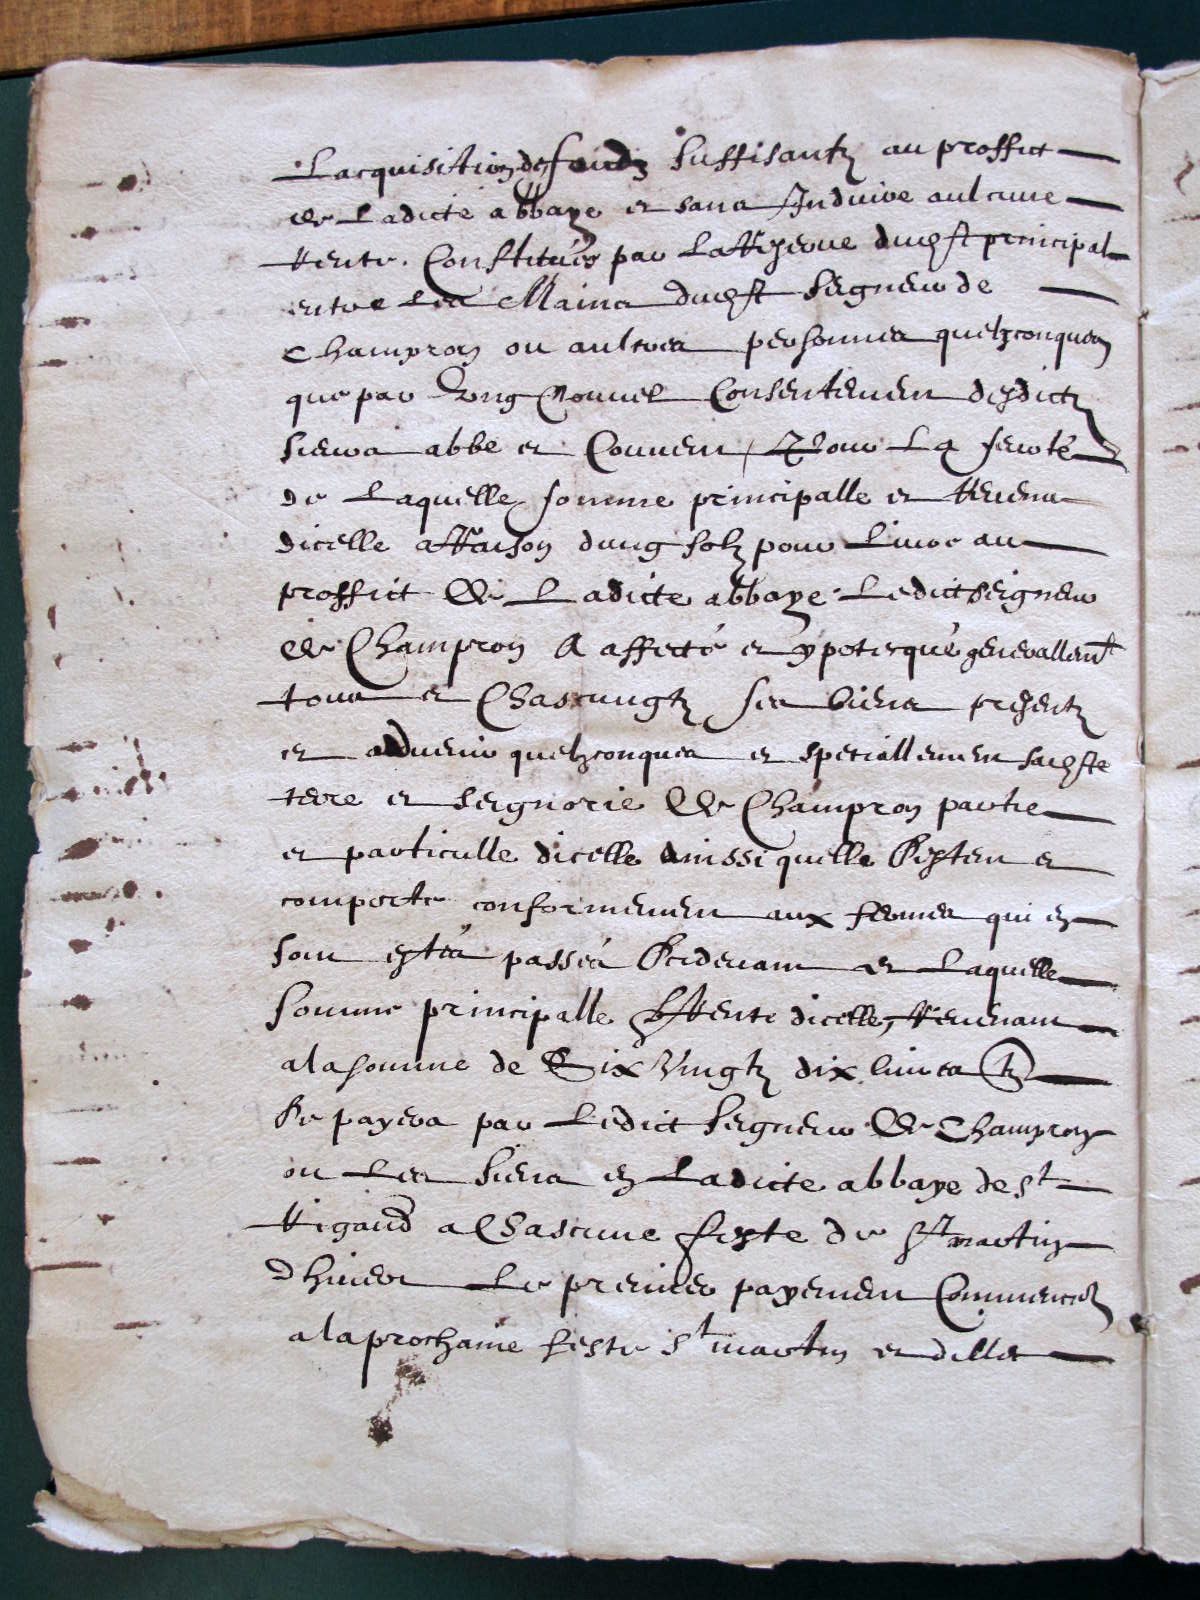 Lacquisition de fondz suffisantz au proffict
de Ladicte abbaye et sans Induire aulcune
Rente Constituée par La Reserve dud principal
entre Les Mains dud Seigneur de
Champron ou aultres personnes quelzconques
que par Ung Nouvel Consentement desdictz
sieurs abbe et Couvent / Pour La seurté
de Laquelle somme principalle et Revenu
dicelle a Raison dung solz pour Livre au
proffict de Ladicte abbaye Ledict seigneur
de Champron A affecté et ypotecqué generallemt
tous et Chascungtz ses biens presentz
et advenir quelzconques et speciallement sad
terre et seignorie de Champron partie
et particulle dicelle ainssi quelle Sesten et
comporte conformement aux fermes qui en
sont estés passés Cydevant et Laquelle
somme principalle Rente dicelle, Revenant
a la somme de Six Vingtz dix Livres tz
Se payera par Ledict Seigneur de Champron
ou Les Siens en Ladicte abbaye de St
Rigaud a Chascune feste de St martin
dhiver Le premier payement Commencera
a la prochaine feste St martin et dilles